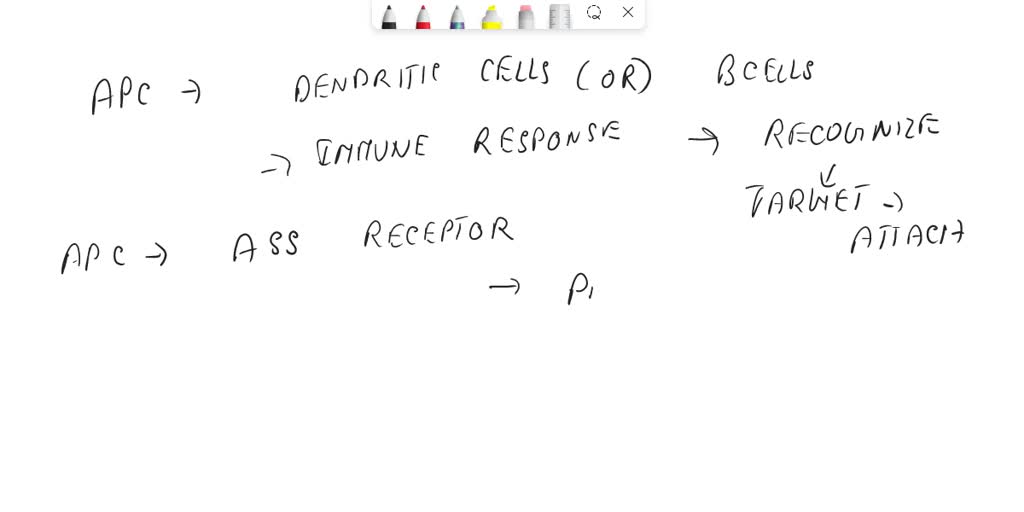 APC → DENDRITIC CELLS (OR) B CELLS
→ IMMUNE RESPONSE → RECOGNIZE
↓
TARGET →
ATTACH
APC → ASS RECEPTOR
→ P